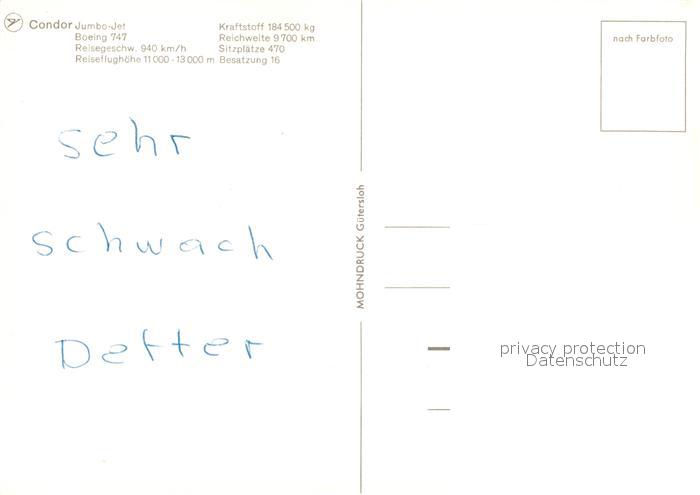 Condor Jumbo-Jet
Boeing 747
Reisegeschw. 940 km/h
Reiseflughöhe 11 000 - 13 000 m
Kraftstoff 184 500 kg
Reichweite 9 700 km
Sitzplätze 470
Besatzung 16
sehr
schwach
Detter
MOHNDRUCK Gütersloh
nach Farbfoto
privacy protection
Datenschutz